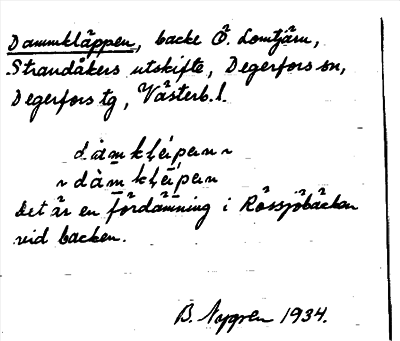 Dammkläppen, backe Ö. Lomtjärn,
Strandåkers utskifte, Degerfors sn,
Degerfors tg, Västerb. l.
dàmkļépen ~
~ dàm kļépen
Det är en fördämning i Rössjöbäcken
vid backen.
B. Nygren 1934.